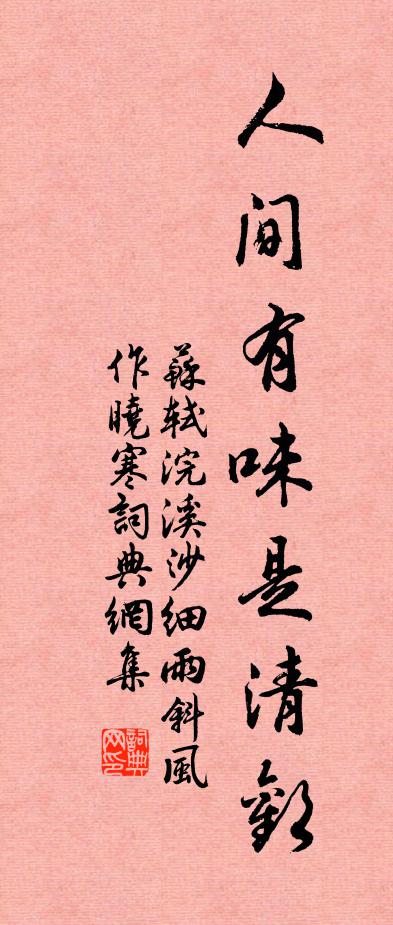 人間有味是清歡
蘇軾浣溪沙細雨斜風
作曉寒詞典網集
詞典
网印